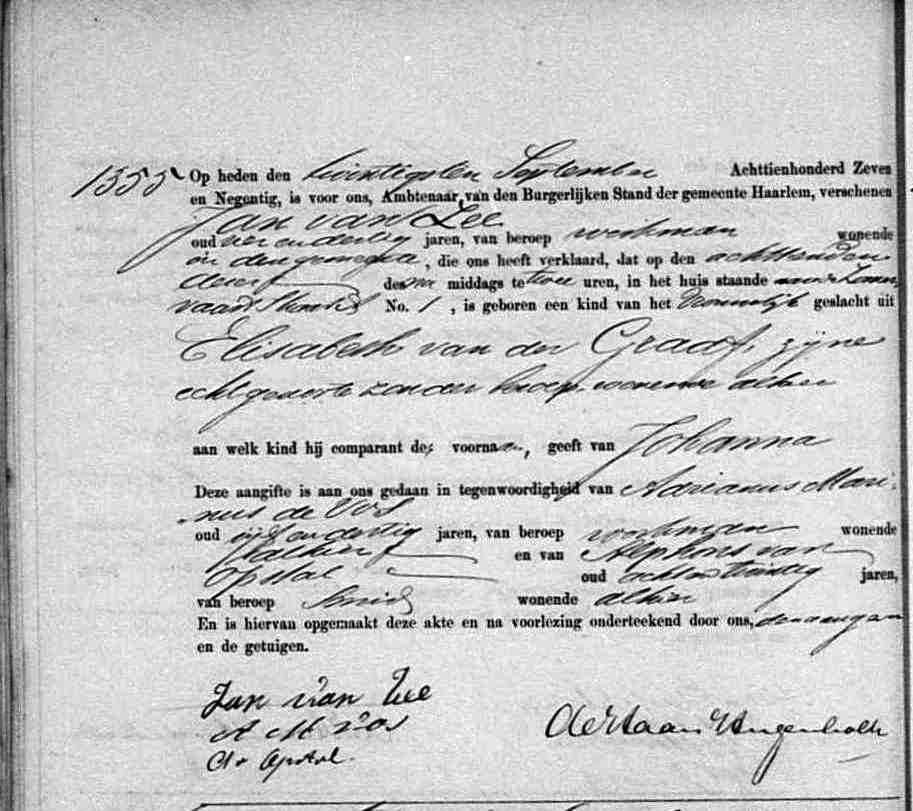 1355 Op heden den twintigsten September Achttienhonderd Zeven
en Negentig, is voor ons, Ambtenaar van den Burgerlijken Stand der gemeente Haarlem, verschenen
Jan van Zee
oud vier en dertig jaren, van beroep werkman wonende
in deze gemeente, die ons heeft verklaard, dat op den achttienden
dezer des middags te twee uren, in het huis staande
No. 1, is geboren een kind van het Vrouwelijk geslacht uit
Elisabeth van der Graaf, zijne
echtgenoote zonder beroep wonende alhier
aan welk kind hij comparant de voornaam, geeft van Johanna
Deze aangifte is aan ons gedaan in tegenwoordigheid van Adrianus Mari-
nus de Vos
oud vijf en dertig jaren, van beroep werkman wonende
alhier en van Alphons van
Opstal oud acht en twintig jaren,
van beroep Smid wonende alhier
En is hiervan opgemaakt deze akte en na voorlezing onderteekend door ons, den aangever
en de getuigen.
Jan van Zee
A M Vos
A v Opstal.